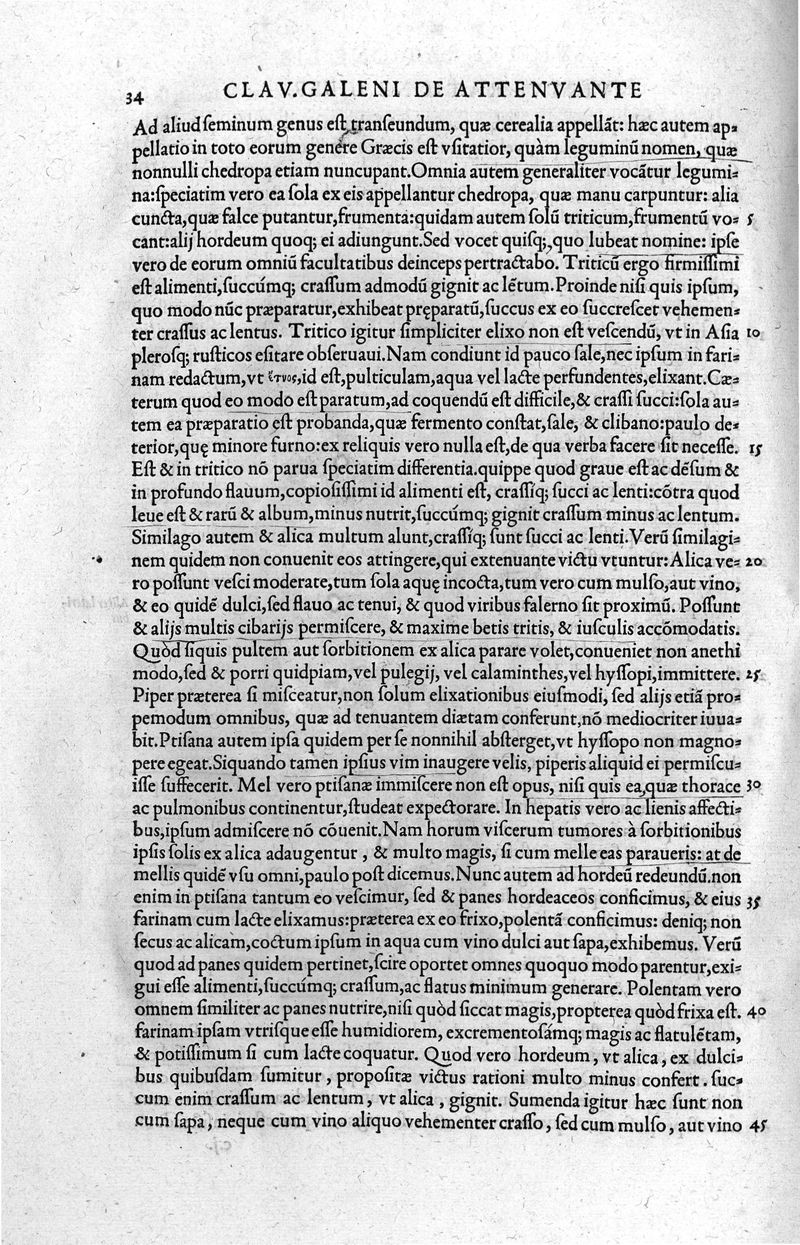 34 CLAV. GALENI DE ATTENVANTE
Ad aliud ſeminum genus eſt tranſeundum, quæ cerealia appellãt: hæc autem ap-
pellatio in toto eorum genere Græcis eſt vſitatior, quàm leguminũ nomen, quæ
nonnulli chedropa etiam nuncupant. Omnia autem generaliter vocãtur legumi-
na: ſpeciatim vero ea ſola ex eis appellantur chedropa, quæ manu carpuntur: alia
cuncta, quæ falce putantur, frumenta: quidam autem ſolũ triticum, frumentũ vo- 5
cant: alij hordeum quoq; ei adiungunt. Sed vocet quiſq;, quo lubeat nomine: ipſe
vero de eorum omniũ facultatibus deinceps pertractabo. Triticũ ergo firmiſſimi
eſt alimenti, ſuccúmq; craſſum admodũ gignit ac lẽtum. Proinde niſi quis ipſum,
quo modo nũc præparatur, exhibeat pręparatũ, ſuccus ex eo ſuccreſcet vehemen-
ter craſſus ac lentus. Tritico igitur ſimpliciter elixo non eſt veſcendũ, vt in Aſia 10
pleroſq; ruſticos eſitare obſeruaui. Nam condiunt id pauco ſale, nec ipſum in fari-
nam redactum, vt ἔτνος, id eſt, pulticulam, aqua vel lacte perfundentes, elixant. Cæ-
terum quod eo modo eſt paratum, ad coquendũ eſt difficile, & craſſi ſucci: ſola au-
tem ea præparatio eſt probanda, quæ fermento conſtat, ſale, & clibano: paulo de-
terior, quę minore furno: ex reliquis vero nulla eſt, de qua verba facere ſit neceſſe. 15
Eſt & in tritico nõ parua ſpeciatim differentia. quippe quod graue eſt ac dẽſum &
in profundo flauum, copioſiſſimi id alimenti eſt, craſſíq; ſucci ac lenti: cõtra quod
leue eſt & rarũ & album, minus nutrit, ſuccúmq; gignit craſſum minus ac lentum.
Similago autem & alica multum alunt, craſſíq; ſunt ſucci ac lenti. Verũ ſimilagi-
nem quidem non conuenit eos attingere, qui extenuante victu vtuntur: Alica ve- 20
ro poſſunt veſci moderate, tum ſola aquę incocta, tum vero cum mulſo, aut vino,
& eo quidẽ dulci, ſed flauo ac tenui, & quod viribus falerno ſit proximũ. Poſſunt
& alijs multis cibarijs permiſcere, & maxime betis tritis, & iuſculis accõmodatis.
Quòd ſiquis pultem aut ſorbitionem ex alica parare volet, conueniet non anethi
modo, ſed & porri quidpiam, vel pulegij, vel calaminthes, vel hyſſopi, immittere. 25
Piper præterea ſi miſceatur, non ſolum elixationibus eiuſmodi, ſed alijs etiã pro-
pemodum omnibus, quæ ad tenuantem diætam conferunt, nõ mediocriter iuua-
bit. Ptiſana autem ipſa quidem per ſe nonnihil abſterget, vt hyſſopo non magno-
pere egeat. Siquando tamen ipſius vim inaugere velis, piperis aliquid ei permiſcu-
iſſe ſuffecerit. Mel vero ptiſanæ immiſcere non eſt opus, niſi quis ea, quæ thorace 30
ac pulmonibus continentur, ſtudeat expectorare. In hepatis vero ac lienis affecti-
bus, ipſum admiſcere nõ cõuenit. Nam horum viſcerum tumores à ſorbitionibus
ipſis ſolis ex alica adaugentur, & multo magis, ſi cum melle eas paraueris: at de
mellis quidẽ vſu omni, paulo poſt dicemus. Nunc autem ad hordeũ redeundũ. non
enim in ptiſana tantum eo veſcimur, ſed & panes hordeaceos conficimus, & eius 35
farinam cum lacte elixamus: præterea ex eo frixo, polentã conficimus: deniq; non
ſecus ac alicam, coctum ipſum in aqua cum vino dulci aut ſapa, exhibemus. Verũ
quod ad panes quidem pertinet, ſcire oportet omnes quoquo modo parentur, exi-
gui eſſe alimenti, ſuccúmq; craſſum, ac flatus minimum generare. Polentam vero
omnem ſimiliter ac panes nutrire, niſi quòd ſiccat magis, propterea quòd frixa eſt. 40
farinam ipſam vtriſque eſſe humidiorem, excrementoſámq; magis ac flatulẽtam,
& potiſſimum ſi cum lacte coquatur. Quod vero hordeum, vt alica, ex dulci-
bus quibuſdam ſumitur, propoſitæ victus rationi multo minus confert. ſuc-
cum enim craſſum ac lentum, vt alica, gignit. Sumenda igitur hæc ſunt non
cum ſapa, neque cum vino aliquo vehementer craſſo, ſed cum mulſo, aut vino 45